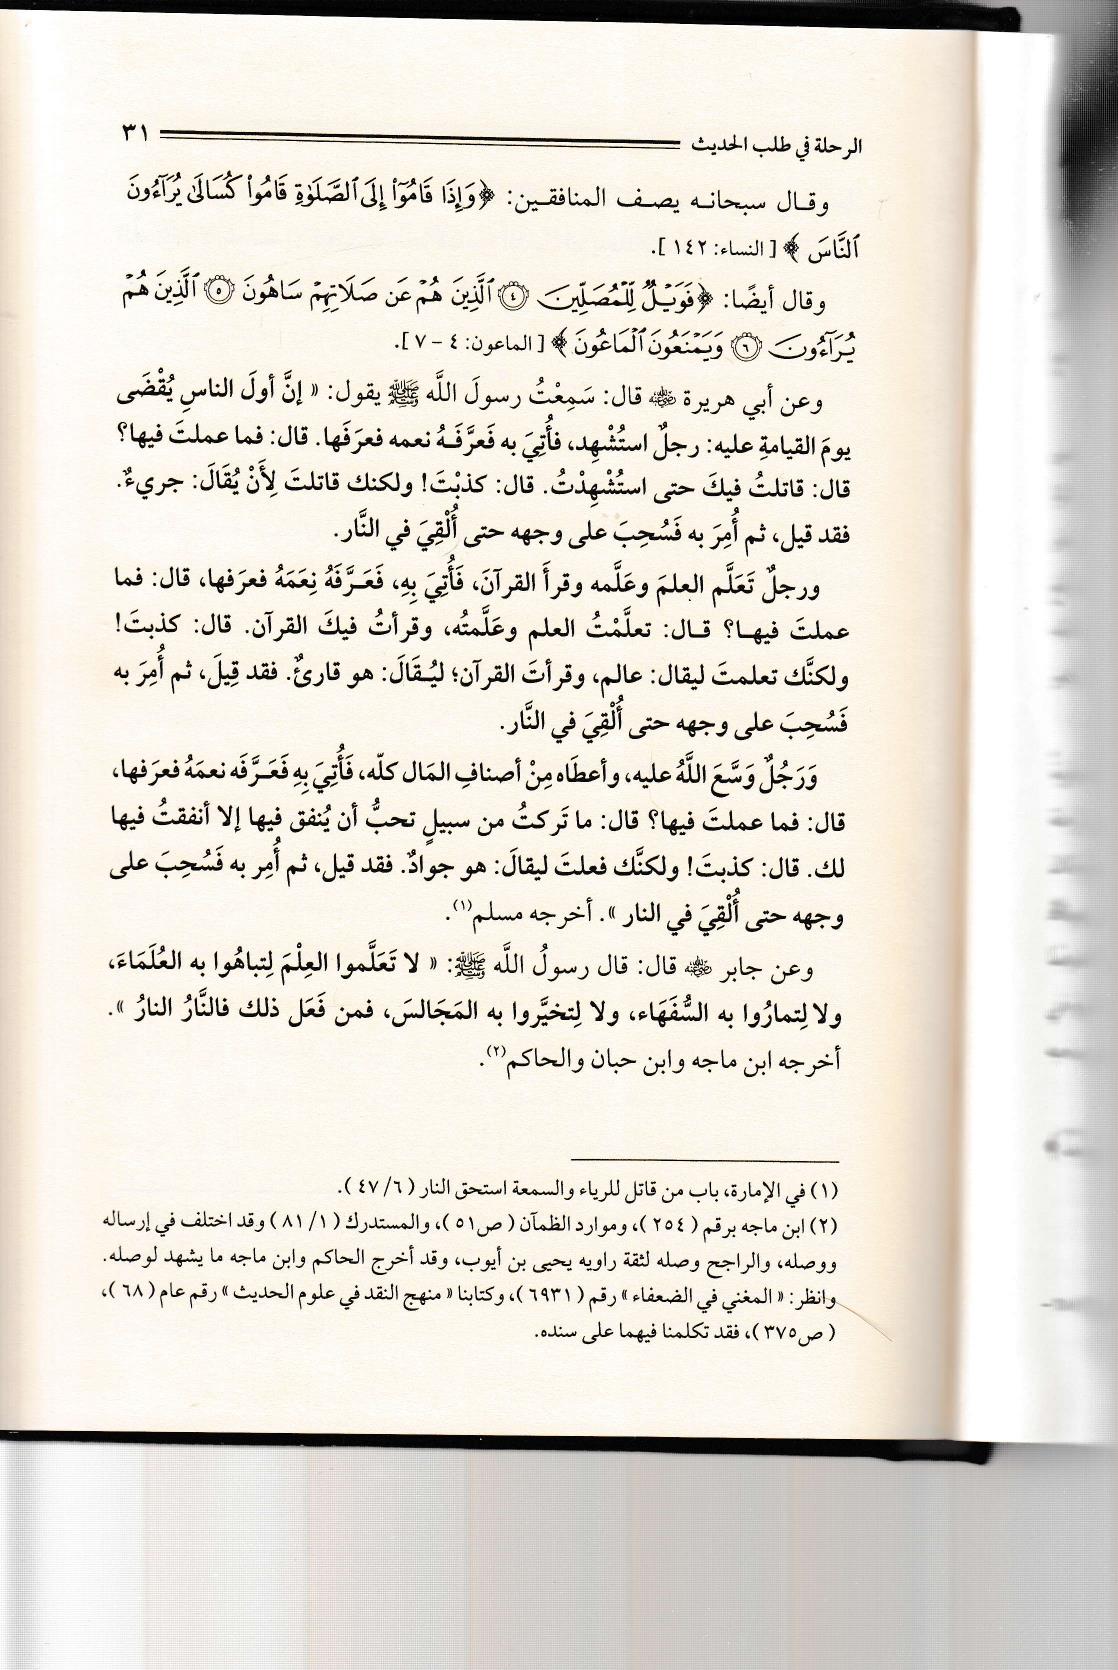 الرحلة في طلب الحديث ٣١
وقال سبحانه يصف المنافقين: ﴿وَإِذَا قَامُوٓا۟ إِلَى ٱلصَّلَوٰةِ قَامُوا۟ كُسَالَىٰ يُرَآءُونَ
ٱلنَّاسَ﴾ [النساء: ١٤٢].
وقال أيضًا: ﴿فَوَيْلٌ لِّلْمُصَلِّينَ ٤ ٱلَّذِينَ هُمْ عَن صَلَاتِهِمْ سَاهُونَ ٥ ٱلَّذِينَ هُمْ
يُرَآءُونَ ٦ وَيَمْنَعُونَ ٱلْمَاعُونَ﴾ [الماعون: ٤ - ٧].
وعن أبي هريرة رضي الله عنه قال: سَمِعْتُ رسولَ اللَّه ﷺ يقول: « إنَّ أولَ الناسِ يُقْضَى
يومَ القيامةِ عليه: رجلٌ استُشْهِد، فأُتِيَ به فَعرَّفَهُ نعمه فعرَفَها. قال: فما عملتَ فيها؟
قال: قاتلتُ فيكَ حتى استُشْهِدْتُ. قال: كذبْتَ! ولكنك قاتلتَ لِأَنْ يُقَالَ: جريءٌ.
فقد قيل، ثم أُمِرَ به فَسُحِبَ على وجهه حتى أُلْقِيَ في النَّار.
ورجلٌ تَعَلَّم العلمَ وعَلَّمه وقرأَ القرآنَ، فَأُتِيَ بِهِ، فَعَرَّفَهُ نِعَمَهُ فعرَفها، قال: فما
عملتَ فيها؟ قال: تعلَّمْتُ العلم وعَلَّمتُه، وقرأتُ فيكَ القرآن. قال: كذبتَ!
ولكنَّك تعلمتَ ليقال: عالم، وقرأتَ القرآن؛ ليُقَالَ: هو قارئٌ. فقد قِيلَ، ثم أُمِرَ به
فَسُحِبَ على وجهه حتى أُلْقِيَ في النَّار.
وَرَجُلٌ وَسَّعَ اللَّهُ عليه، وأعطَاه مِنْ أصنافِ المَال كلّه، فَأُتِيَ بِهِ فَعَرَّفَه نعمَهُ فعرَفها،
قال: فما عملتَ فيها؟ قال: ما تَركتُ من سبيلٍ تحبُّ أن يُنفق فيها إلا أنفقتُ فيها
لك. قال: كذبتَ! ولكنَّك فعلتَ ليقالَ: هو جوادٌ. فقد قيل، ثم أُمِر به فَسُحِبَ على
وجهه حتى أُلْقِيَ في النار ». أخرجه مسلم(١).
وعن جابر رضي الله عنه قال: قال رسولُ اللَّه ﷺ: « لا تَعَلَّموا العِلْمَ لِتباهُوا به العُلَمَاءَ،
ولا لِتمارُوا به السُّفَهَاء، ولا لِتخيَّروا به المَجَالسَ، فمن فَعَل ذلك فالنَّارُ النارُ ».
أخرجه ابن ماجه وابن حبان والحاكم(٢).
(١) في الإمارة، باب من قاتل للرياء والسمعة استحق النار ( ٦/ ٤٧ ).
(٢) ابن ماجه برقم ( ٢٥٤ )، وموارد الظمآن ( ص٥١ )، والمستدرك ( ١/ ٨١ ) وقد اختلف في إرساله
ووصله، والراجح وصله لثقة راويه يحيى بن أيوب، وقد أخرج الحاكم وابن ماجه ما يشهد لوصله.
وانظر: « المغني في الضعفاء » رقم ( ٦٩٣١ )، وكتابنا « منهج النقد في علوم الحديث » رقم عام ( ٦٨ )،
( ص٣٧٥ )، فقد تكلمنا فيهما على سنده.